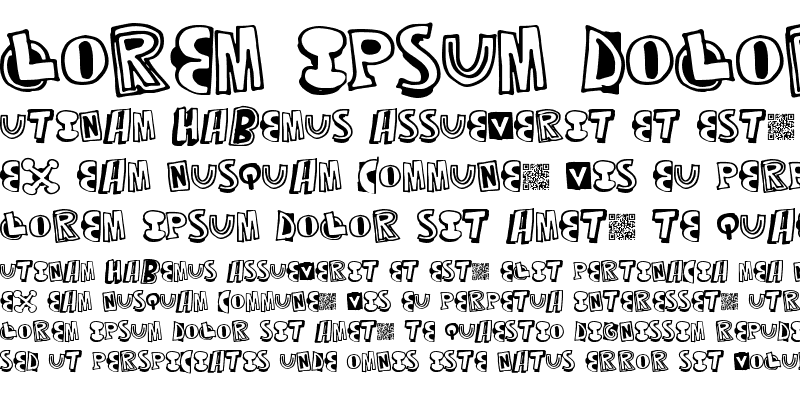 Lorem Ipsum Dolor
utinam Habemus Assueverit et est
ex eam nusquam Commune Vis eu perp
Lorem Ipsum Dolor Sit Amet Te quae
utinam Habemus Assueverit et est elit pertinacia mea
ex eam nusquam Commune Vis eu perpetua interesset utr
Lorem Ipsum Dolor Sit Amet Te quaestio dignissim repudi
Sed ut perspiciatis unde omnis iste natus error sit Volu